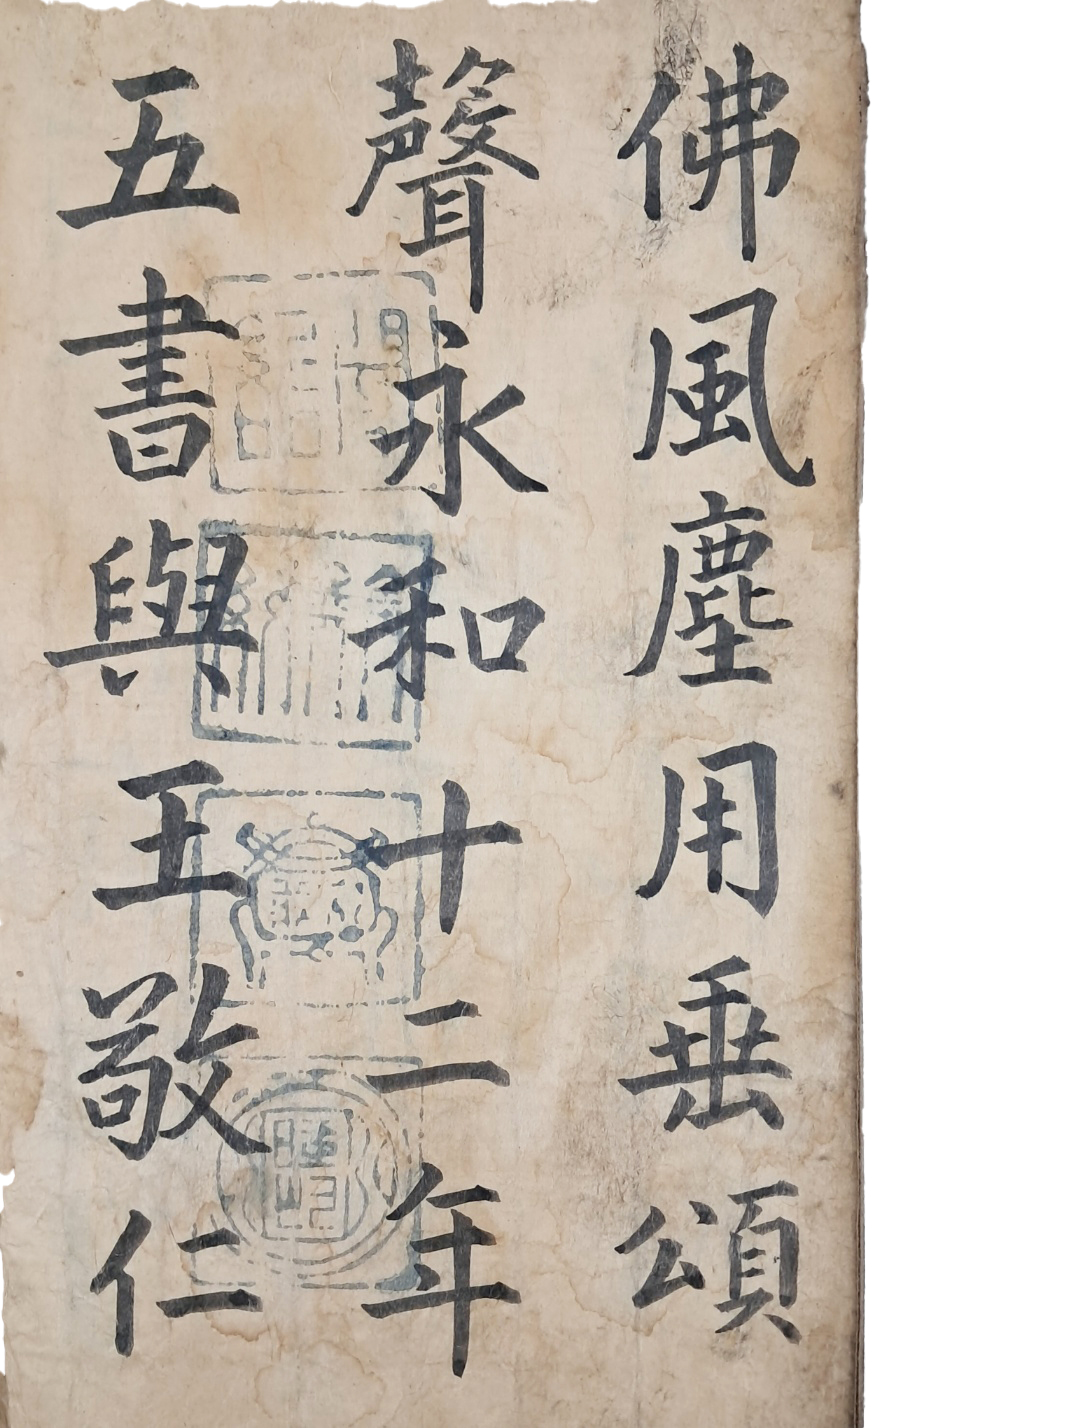 佛風塵用垂頌
聲永和十二年
五書與王敬仁